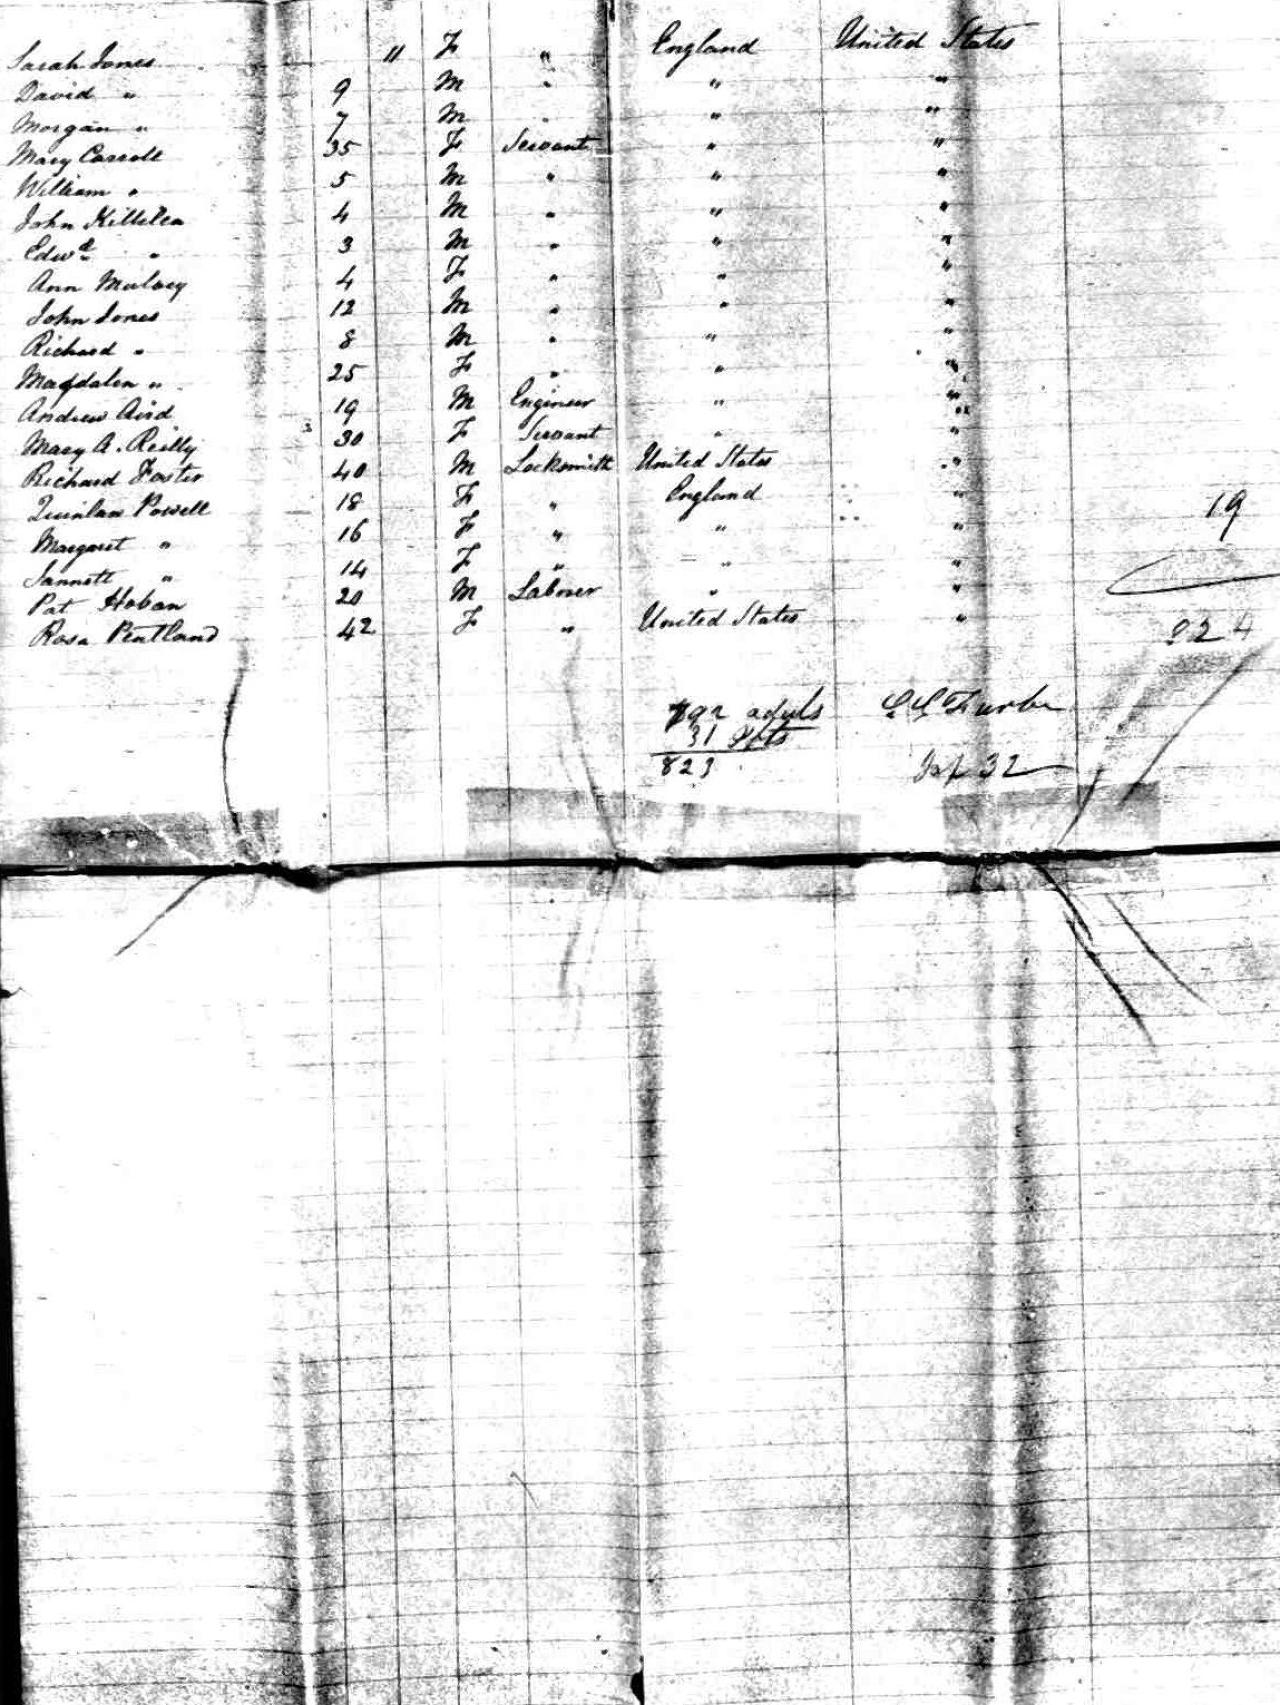 Sarah Jones 11 F " England United States
David " 9 M " " "
Morgan " 7 M " " "
Mary Carroll 35 F Servant " "
William " 5 M " " "
John Killilea 4 M " " "
Edwd " 3 M " " "
Ann Mulvey 4 F " " "
John Jones 12 M " " "
Richard " 8 M " " "
Magdalen " 25 F " " "
Andrew Aird 19 M Engineer " "
Mary A. Reilly 30 F Servant " "
Richard Foster 40 M Locksmith United States "
Quinlan Powell 18 F " England " 19
Margaret " 16 F " " "
Jannett " 14 F " " "
Pat Hoban 20 M Laborer " "
Rosa Pentland 42 F " United States " 824
792 adults
31
823 Inf 32